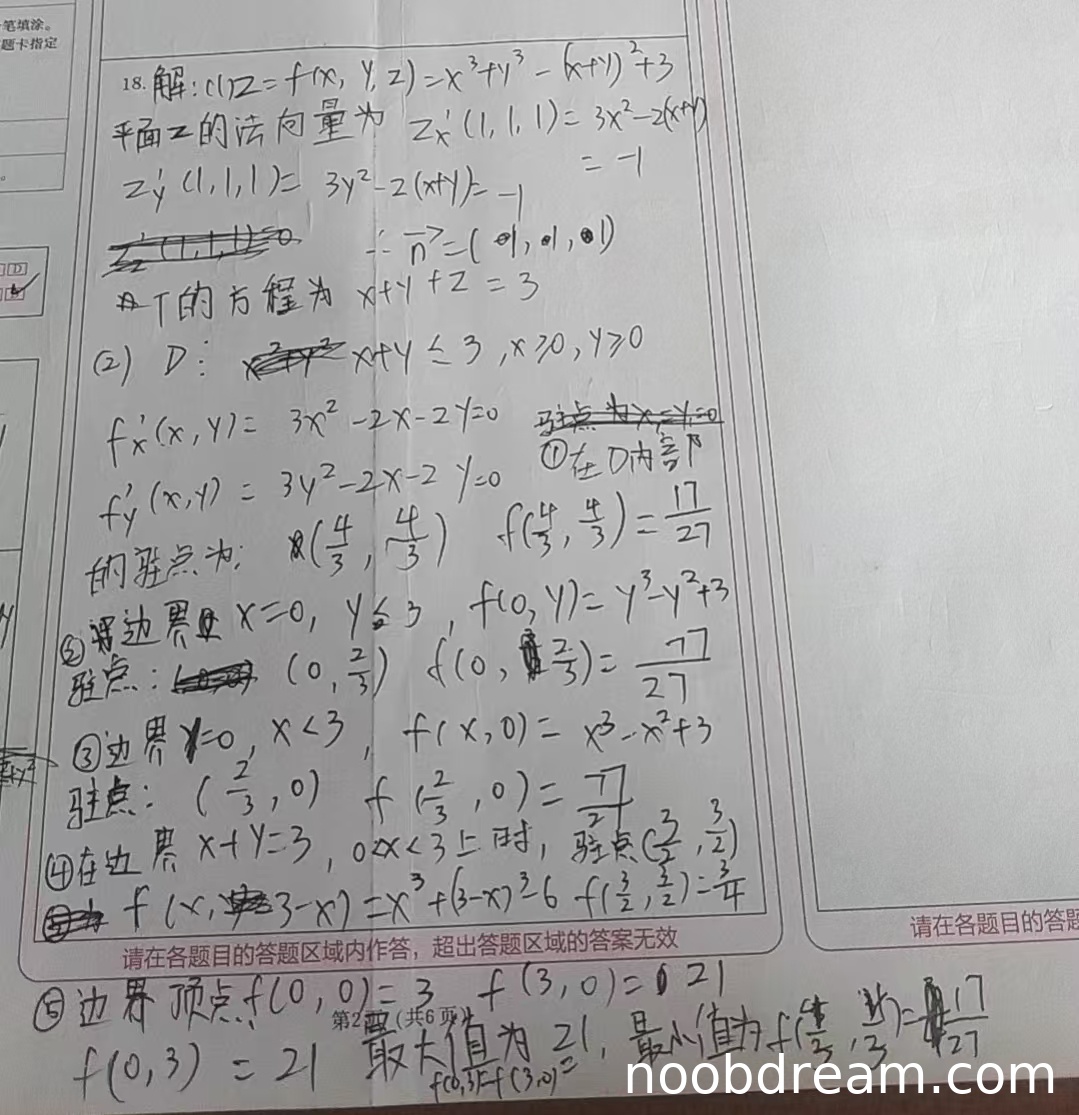 笔填涂。
题卡指定
18. 解:(1)Z=f(x, y, z)=x³+y³-(x+y)²+3
平面z的法向量为 Zx'(1,1,1)=3x²-2(x+y)
=-1
Zy'(1,1,1)= 3y²-2(x+y)=-1
∴ n→=(1,1,1)
T的方程为 x+y+z=3
(2) D: x+y≤3,x≥0,y≥0
fx'(x,y)= 3x²-2x-2y=0
①在D内部
fy'(x,y)= 3y²-2x-2y=0
的驻点为: (4/3, 4/3) f(4/3, 4/3)=17/27
② 边界 x=0, y≤3, f(0,y)=y³-y²+3
驻点: (0, 2/3) f(0, 2/3)= 77/27
③边界 y=0, x<3, f(x,0)= x³-x²+3
驻点: (2/3, 0) f(2/3, 0)= 77/27
④在边界 x+y=3, 0<x<3上时, 驻点(3/2, 3/2)
f(x, 3-x)=x³+(3-x)³-6 f(3/2, 3/2)=3/4
请在各题目的答题区域内作答，超出答题区域的答案无效
请在各题目的答题
⑤边界顶点f(0,0)=3 f(3,0)=21
第2页(共6页)
f(0,3)=21 最大值为 21, 最小值为f(4/3, 4/3)=17/27
f(0,3)=f(3,0)=
noobdream.com